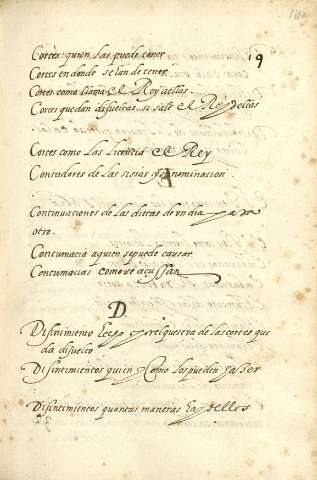 19
Cortes quien las puede tener
Cortes en donde se han de tener
Cortes como llama el Rey a ellas
Cortes quedan disueltas si sale el Rey dellas
Cortes como las licencia el Rey
Contadores de las sisias y su nominacion
E
Continuaciones de las dietas de un dia para
otro.
Contumacia a quien se puede causar
Contumacias como se acussan
D
Disintimiento hecho y respuesta de las cortes que
da disuelto
Disintimientos quien y como los pueden passer
Disintimientos quantas maneras hay dellos